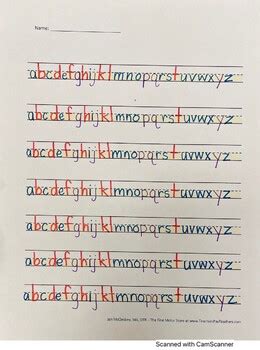 Name:
abcdefghijklmnopqrstuvwxyz
abcdefghijklmnopqrstuvwxyz
abcdefghijklmnopqrstuvwxyz
abcdefghijklmnopqrstuvwxyz
abcdefghijklmnopqrstuvwxyz
abcdefghijklmnopqrstuvwxyz
abcdefghijklmnopqrstuvwxyz
The Fine Motor Store at www.TeachersPayTeachers.com
Scanned with CamScanner